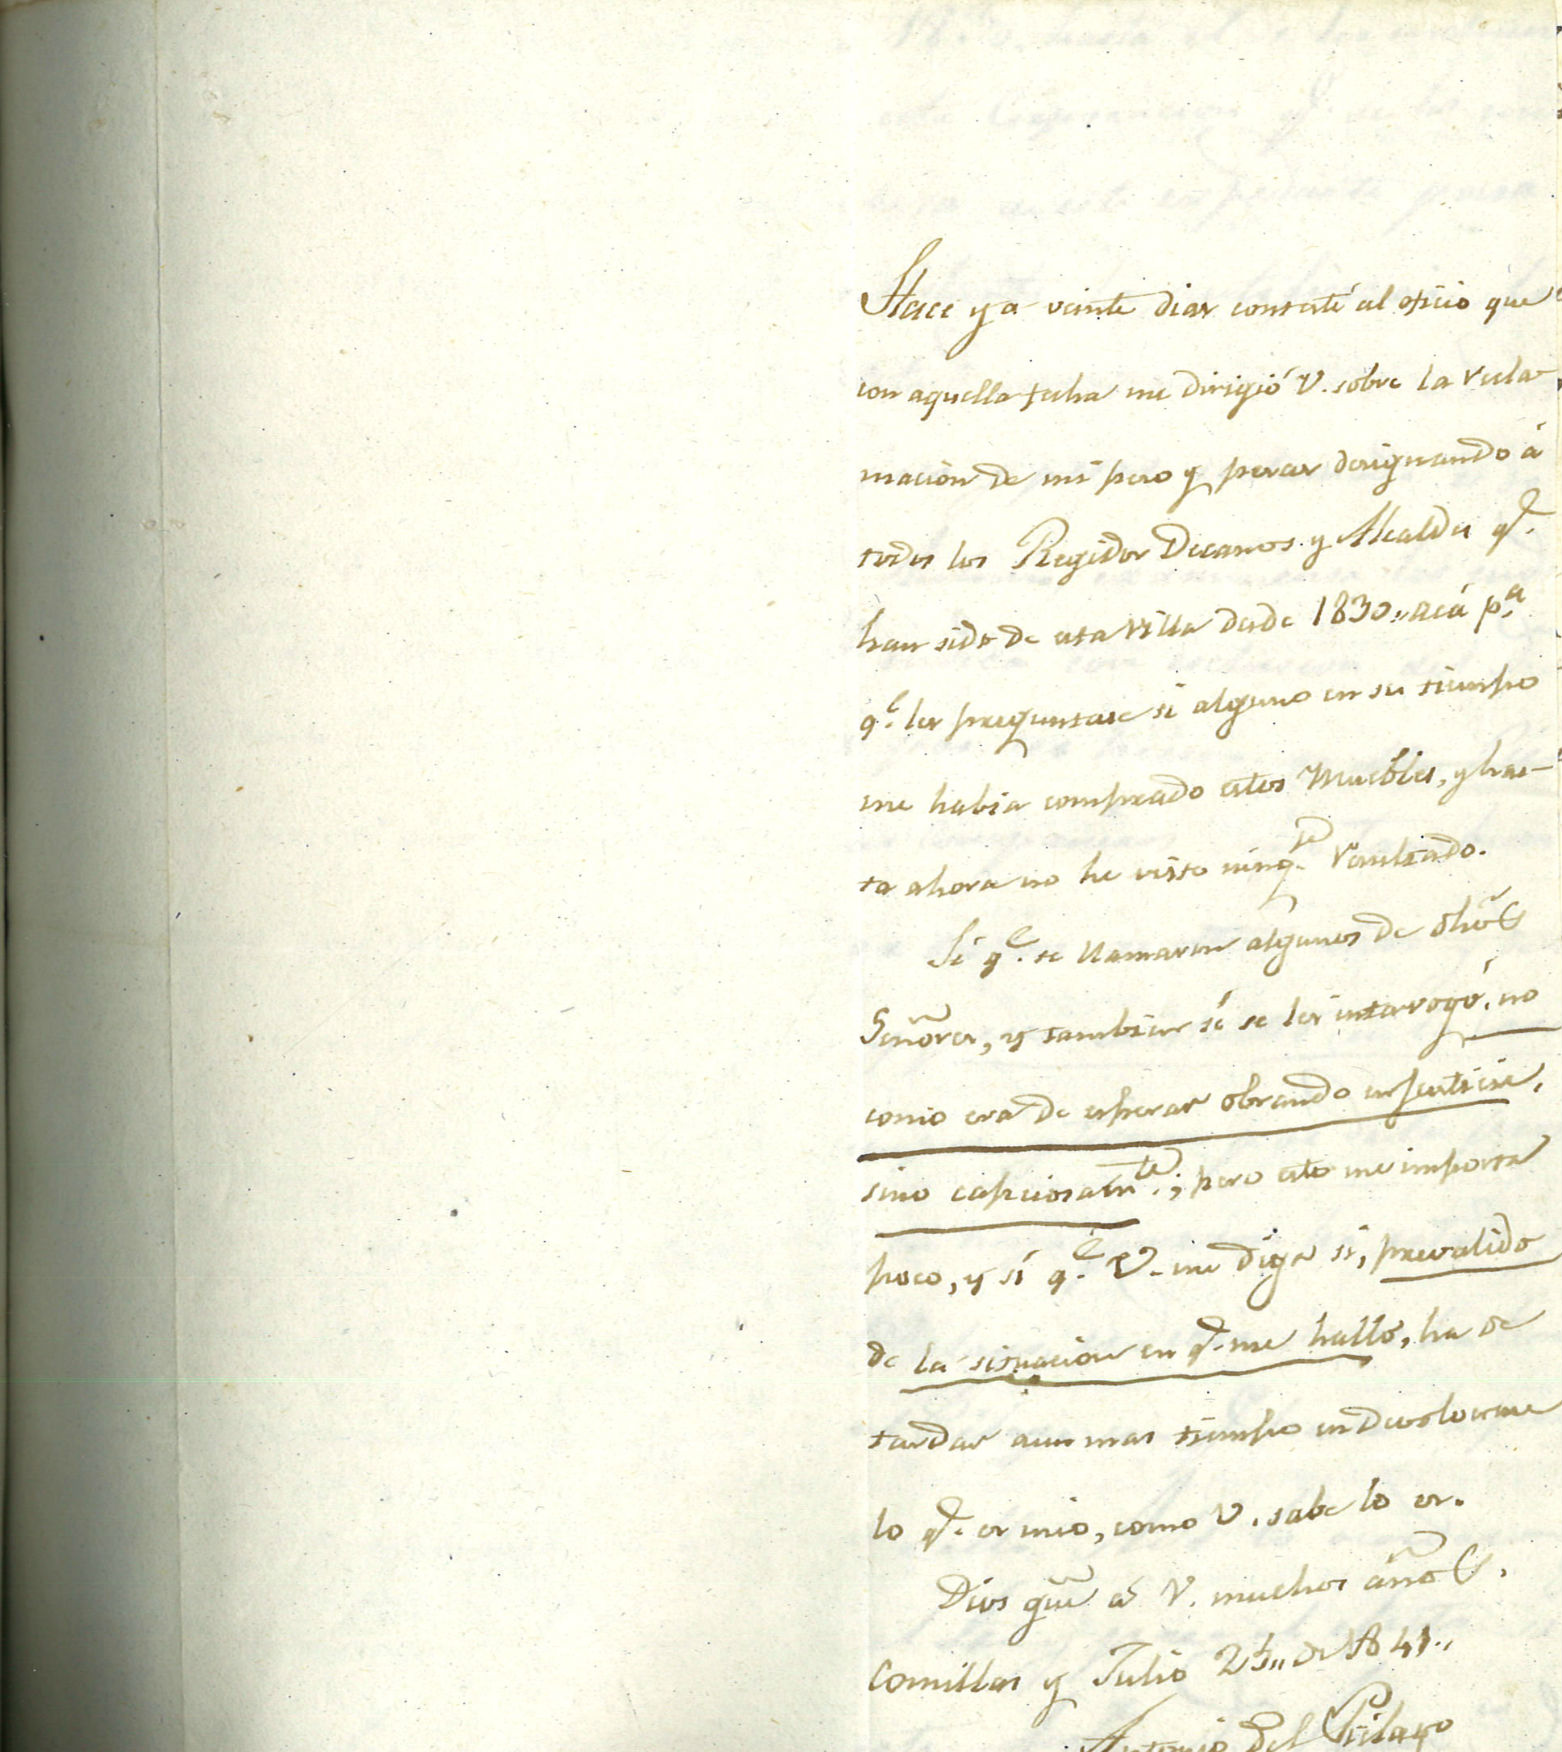 Hace ya veinte dias contesté al oficio que
con aquella fecha me dirigió V. sobre la recla-
macion de mi peso y pesas designando á
todos los Regidor Decanos y Alcaldes q.e
han sido de esta Villa desde 1830,, acá p.a
q.e les preguntase si alguno en su tiempo
me habia comprado estos Muebles, y has-
ta ahora no he visto ning.e resultado.
Sé q.e se llamaron algunos de dhos
Señores, y tambien sé se les interrogó, no
como era de esperar obrando en justicia,
sino capciosam.te; pero esto me importa
poco, y sí q.e V. me diga si, prevalido
de la situacion en q.e me hallo, ha de
tardar aun mas tiempo en devolverme
lo q.e es mio, como V. sabe lo es.
Dios gue á V. muchos años.
Comillas y Julio de 1841,,
Antonio del